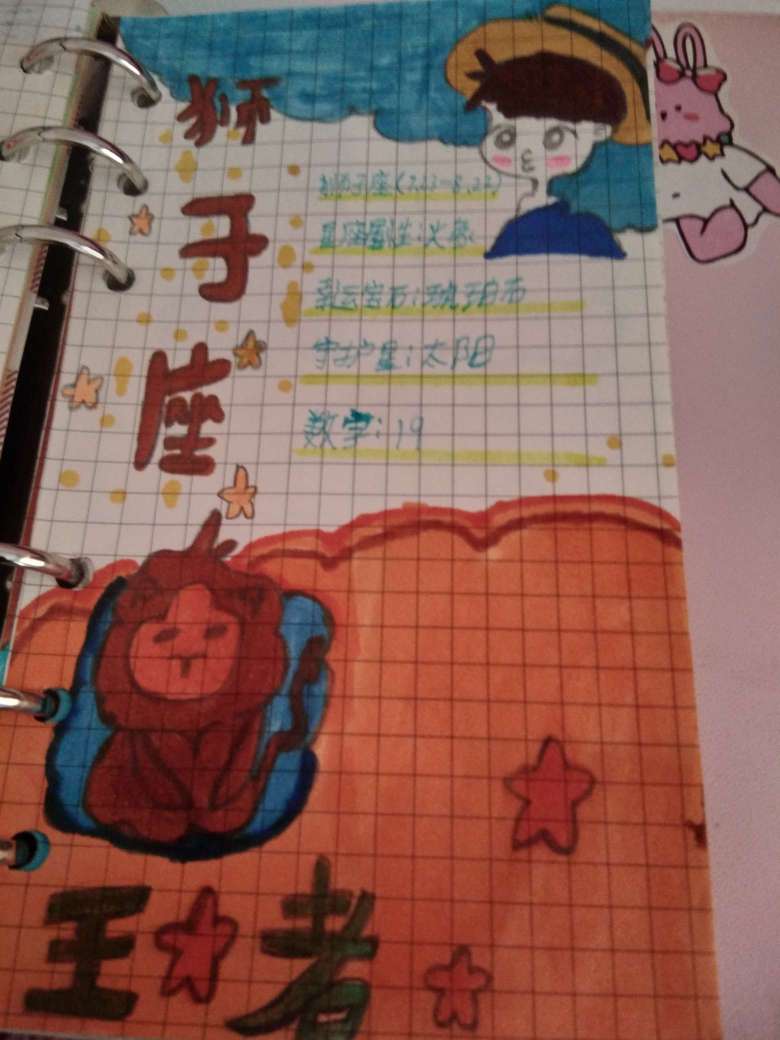 狮子座
狮子座(7.23-8.22)
星座属性:火象
幸运宝石:琥珀石
守护星:太阳
数字:19
王者